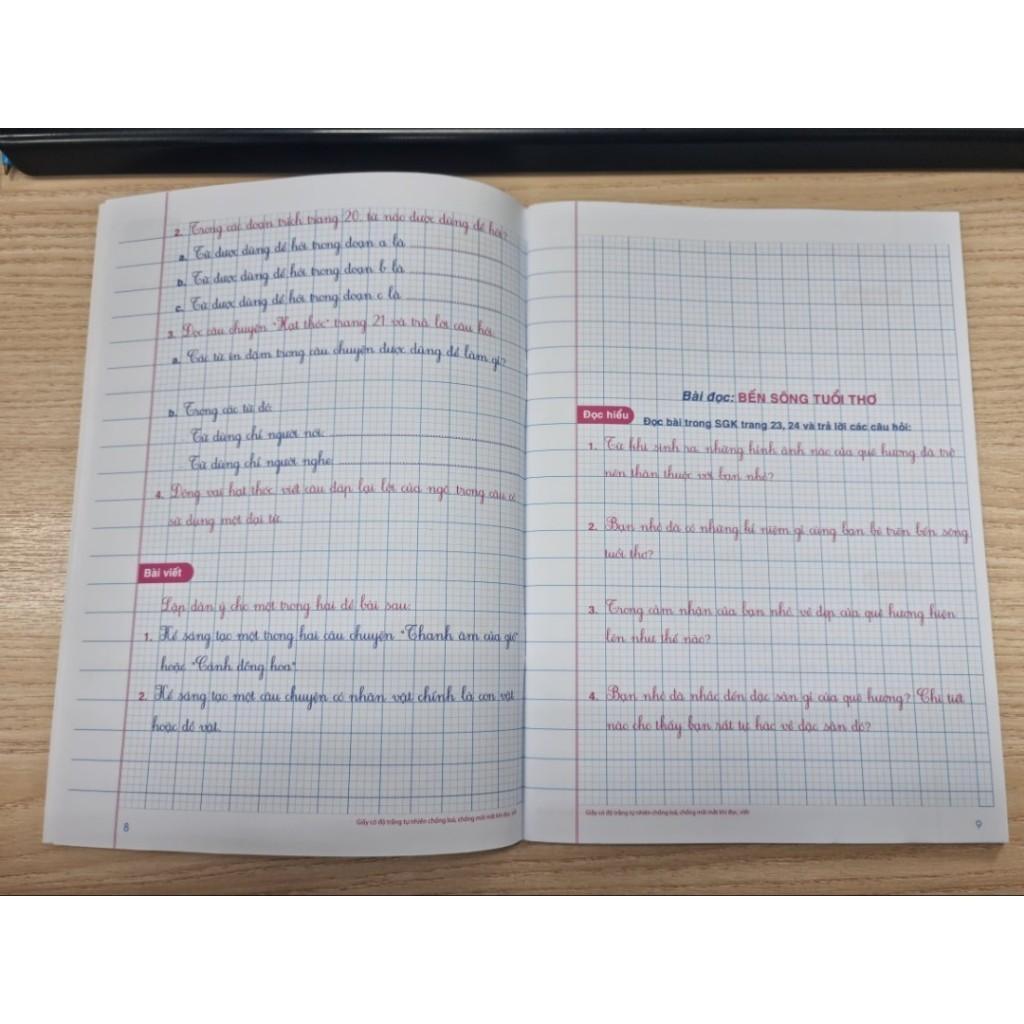 2. Trong các đoạn trích trang 20, từ nào được dùng để hỏi?
a. Từ được dùng để hỏi trong đoạn a là
b. Từ được dùng để hỏi trong đoạn b là
c. Từ được dùng để hỏi trong đoạn c là
3. Đọc câu chuyện "Hạt thóc" trang 21 và trả lời câu hỏi.
a. Các từ in đậm trong câu chuyện được dùng để làm gì?
b. Trong các từ đó:
Từ dùng chỉ người nói:
Từ dùng chỉ người nghe:
4. Đóng vai hạt thóc, viết câu đáp lại lời của ngô, trong câu có
sử dụng một đại từ.
Bài viết
Lập dàn ý cho một trong hai đề bài sau:
1. Kể sáng tạo một trong hai câu chuyện "Thanh âm của gió"
hoặc "Cánh đồng hoa".
2. Kể sáng tạo một câu chuyện có nhân vật chính là con vật
hoặc đồ vật.
Giấy có độ trắng tự nhiên chống loá, chống mỏi mắt khi đọc, viết
8
Bài đọc: BẾN SÔNG TUỔI THƠ
Đọc hiểu
Đọc bài trong SGK trang 23, 24 và trả lời các câu hỏi:
1. Từ khi sinh ra, những hình ảnh nào của quê hương đã trở
nên thân thuộc với bạn nhỏ?
2. Bạn nhỏ đã có những kỉ niệm gì cùng bạn bè trên bến sông
tuổi thơ?
3. Trong cảm nhận của bạn nhỏ, vẻ đẹp của quê hương hiện
lên như thế nào?
4. Bạn nhỏ đã nhắc đến đặc sản gì của quê hương? Chi tiết
nào cho thấy bạn rất tự hào về đặc sản đó?
Giấy có độ trắng tự nhiên chống loá, chống mỏi mắt khi đọc, viết
9